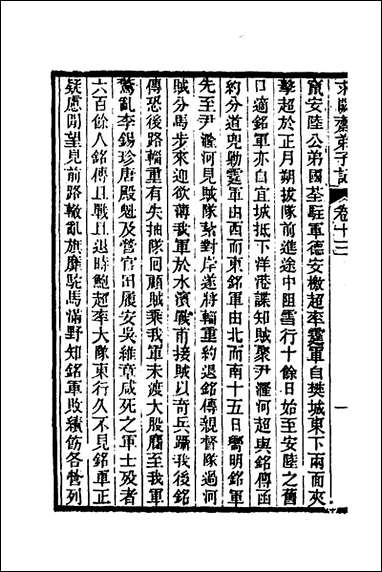 求闕齋弟子記　卷十三　一
竄安陸公弟國荃駐軍德安檄超率霆軍自樊城東下兩面夾
擊超於正月朔拔隊前進途中阻雪行十餘日始至安陸之舊
口適銘軍亦自宜城抵下洋港諜知賊聚尹漋河超與銘傳函
約分道兜勦霆軍由西而東銘軍由北而南十五日嚮明銘軍
先至尹漋河見賊隊紮對岸遂將輜重約退銘傳親督隊過河
賊分馬步來迎欲薄我軍於水濱戰甫接賊以奇兵躡我後銘
傳恐後路輜重有失抽隊回顧賊乘我軍未渡大股廝至我軍
驚亂李錫珍唐殿魁及營官田履安吳維章咸死之軍士歿者
六百餘人銘傳且戰且退時鮑超率大隊東行久不見銘軍正
疑慮間望見前路轍亂旗靡駝馬滿野知銘軍敗績飭各營列